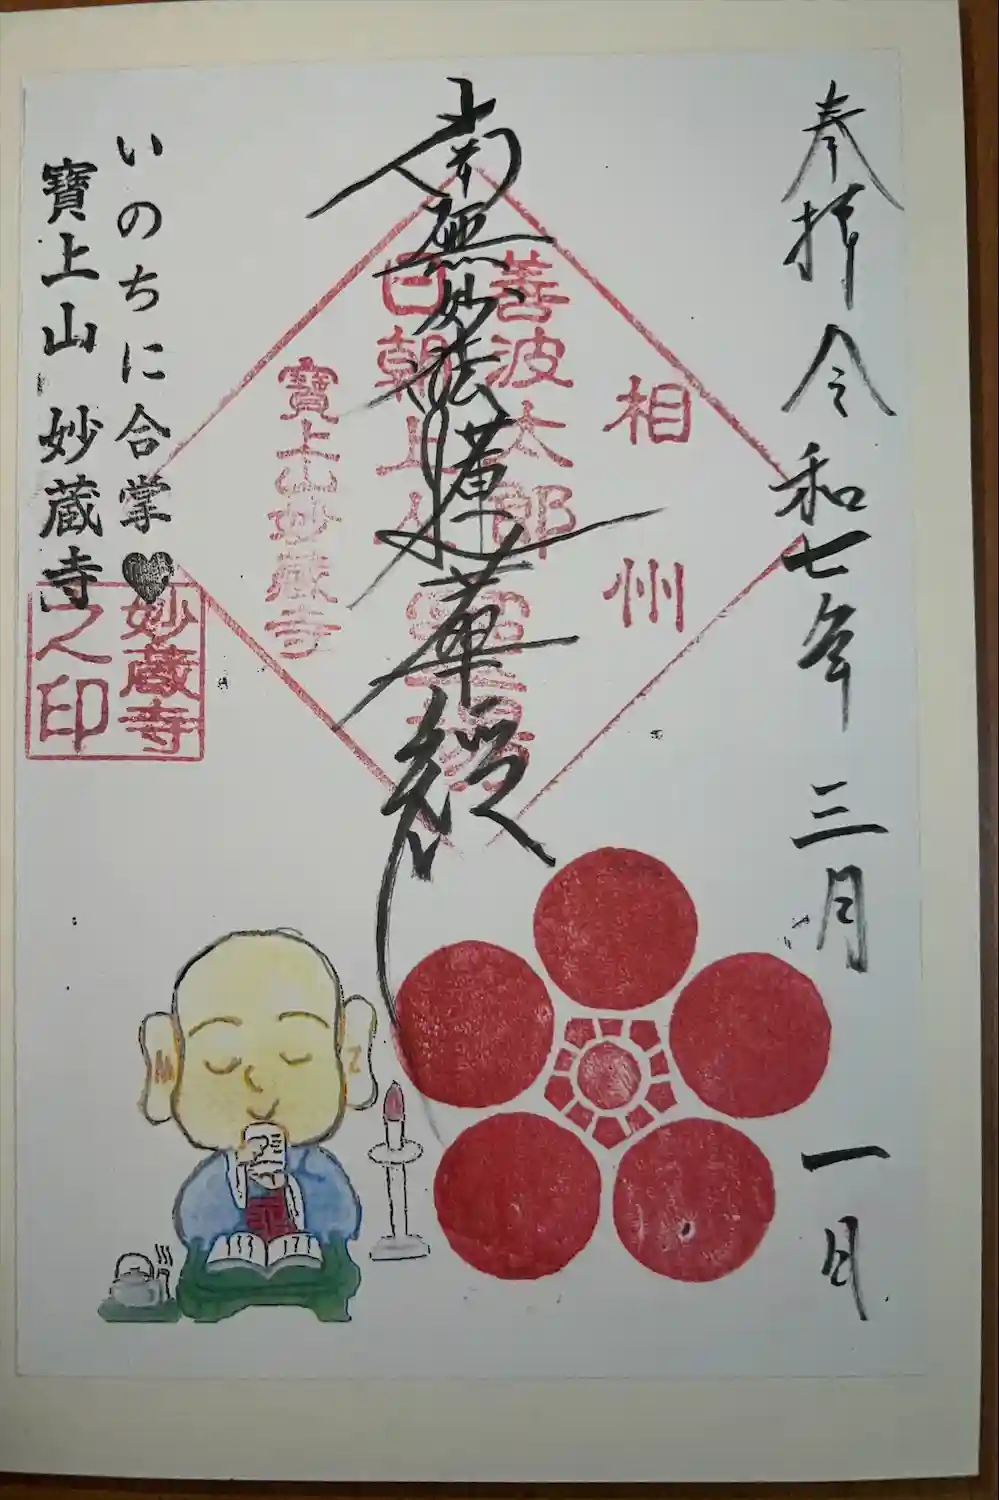 奉拝 令和七年 三月 一日
相州
善波太郎
日朝上人
寶上山妙蔵寺
南無妙法蓮華経
いのちに合掌♥
寶上山 妙蔵寺
妙蔵寺
之印